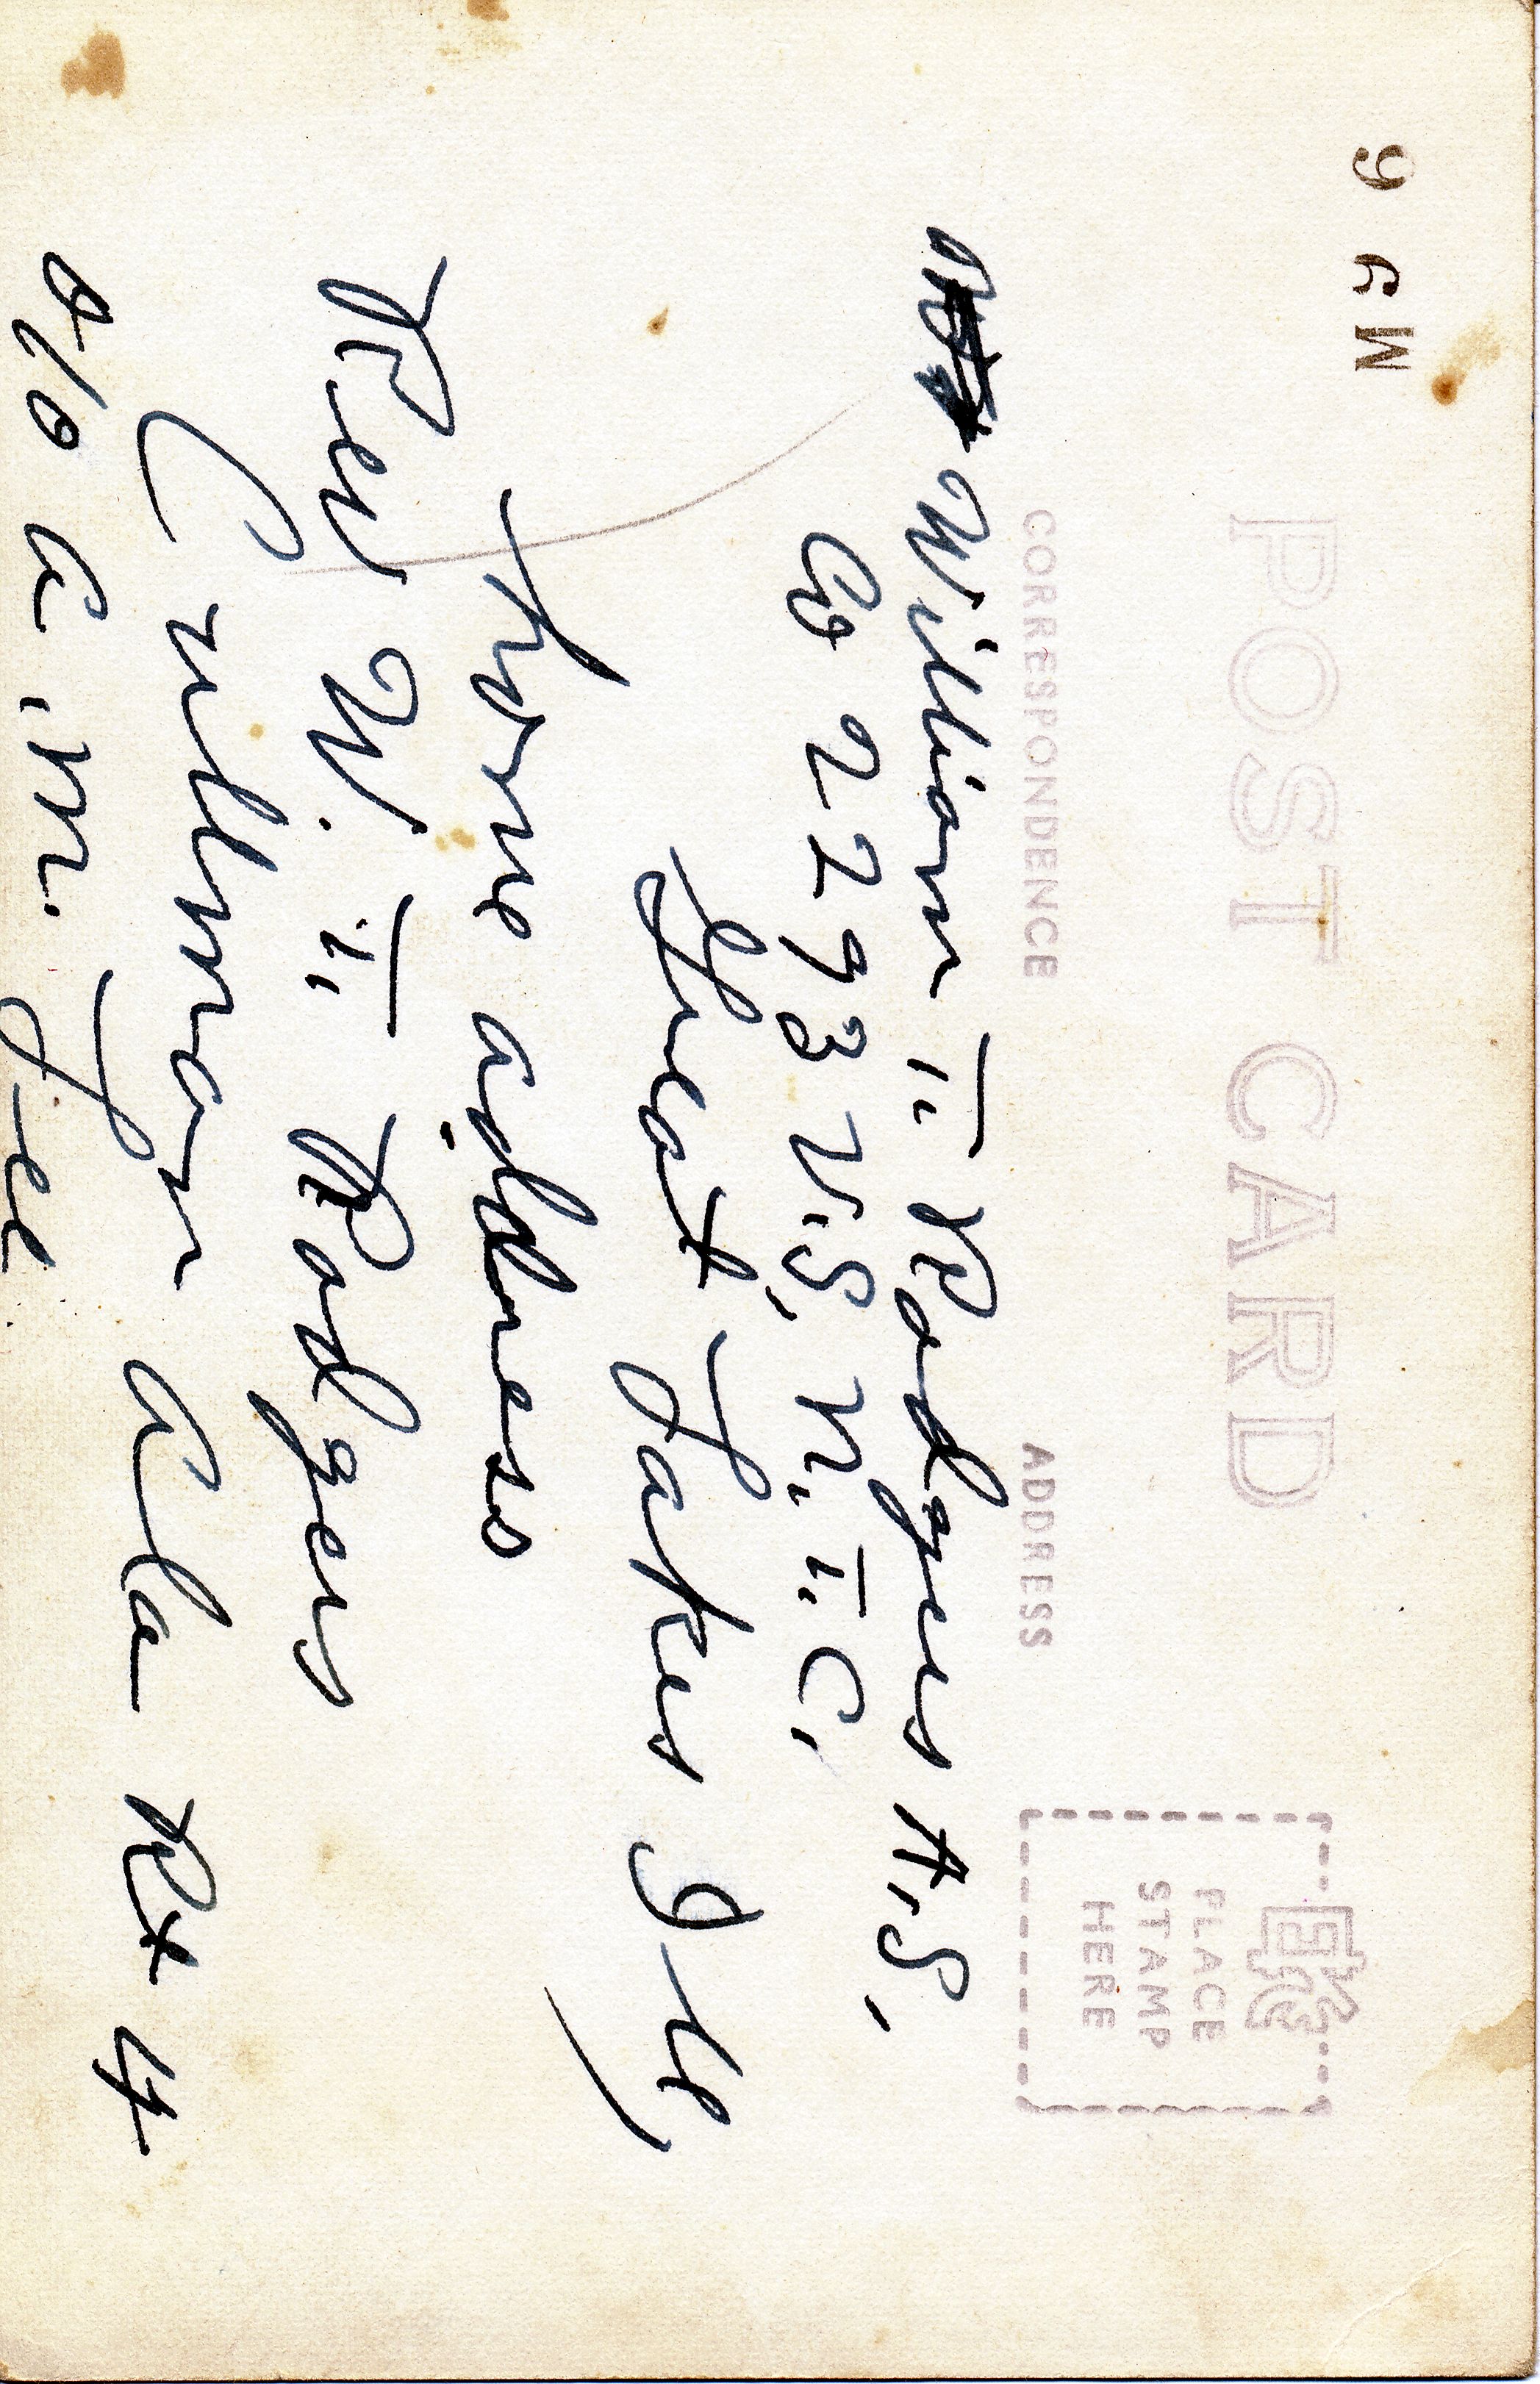 9 GW
POST CARD
CORRESPONDENCE
ADDRESS
EKC
PLACE
STAMP
HERE
William T. Rodgers A.S.
Co 2293 U.S. N.T.C.
Great Lakes Ill
home address
Rev W. T. Rodgers
Cullman Ala Rt 4
% a.m. Lee